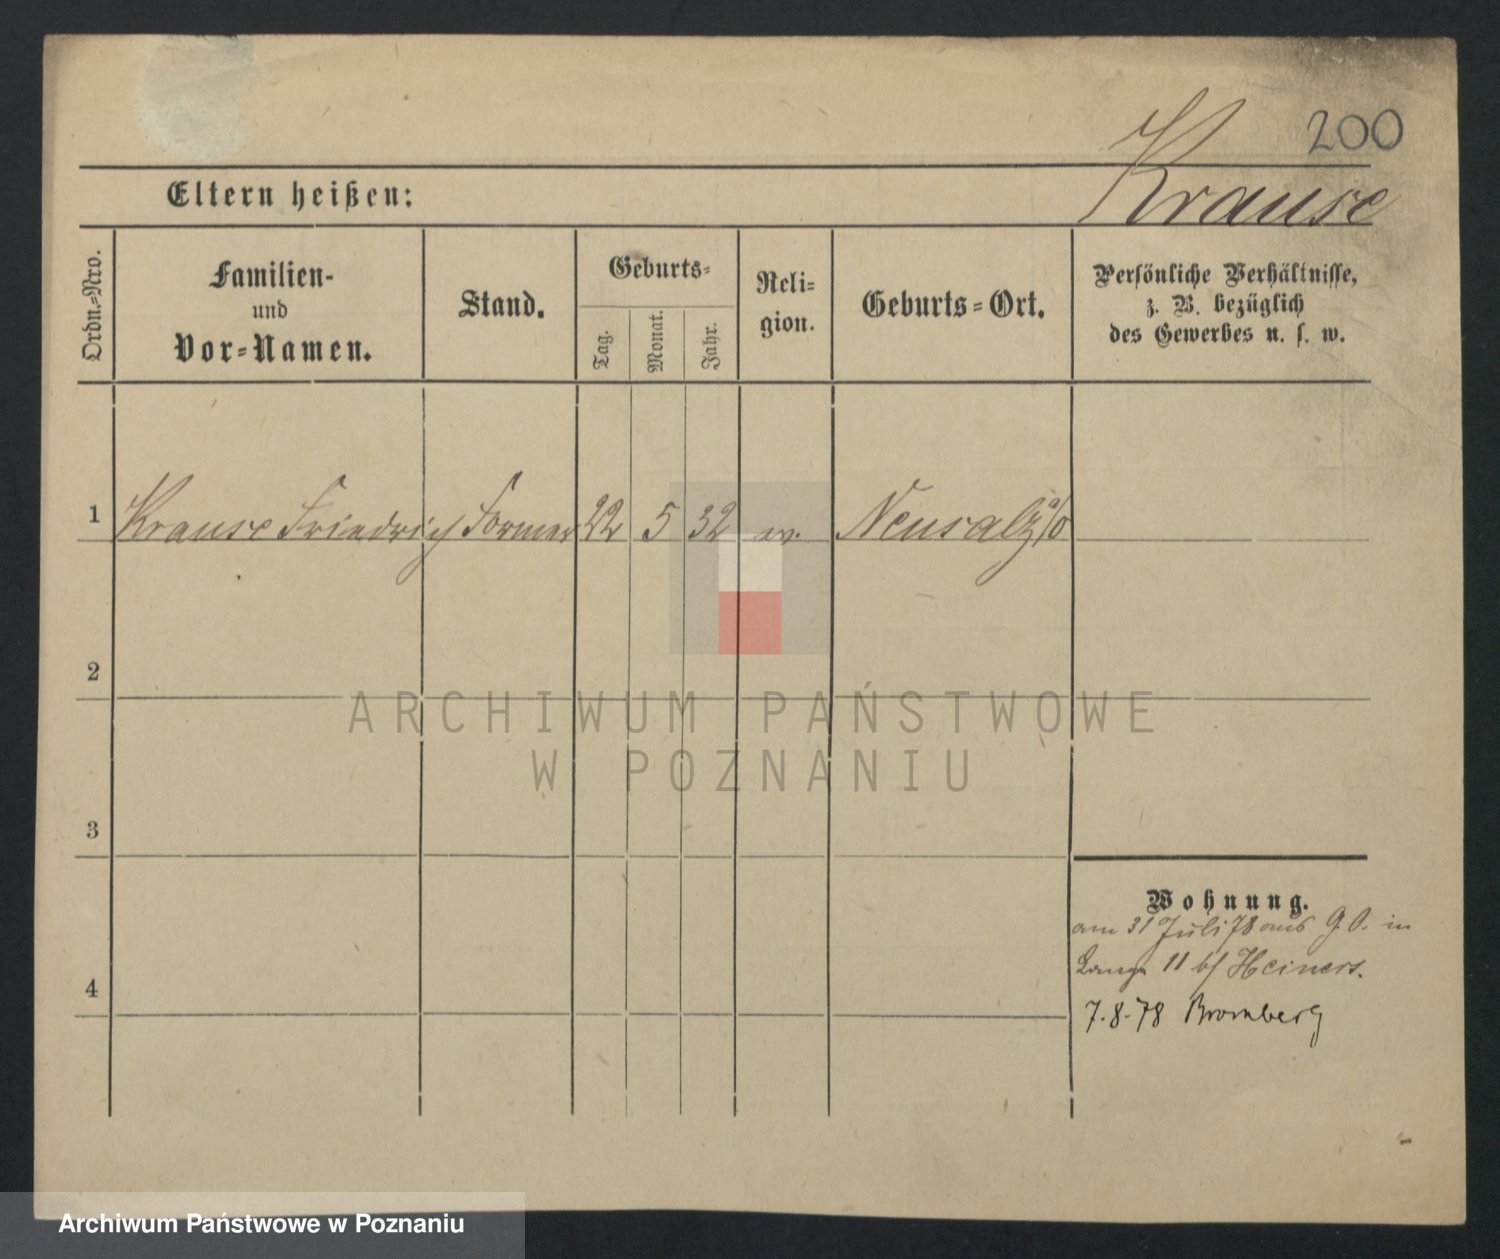 200
Krause
Eltern heißen:
Ordn.-Nro.
Familien-
und
Vor-Namen.
Stand.
Geburts-
Tag.
Monat.
Jahr.
Reli-
gion.
Geburts-Ort.
Persönliche Verhältnisse,
z. B. bezüglich
des Gewerbes u. s. w.
1 Krause Friedrich Former 22 5 32 ev. Neusalz a/O
2
ARCHIWUM PAŃSTWOWE
W POZNANIU
3
Wohnung.
am 31 Juli 78 aus G.O. in
11 b/ Heiners.
4
7.8.78 Bromberg
Archiwum Państwowe w Poznaniu